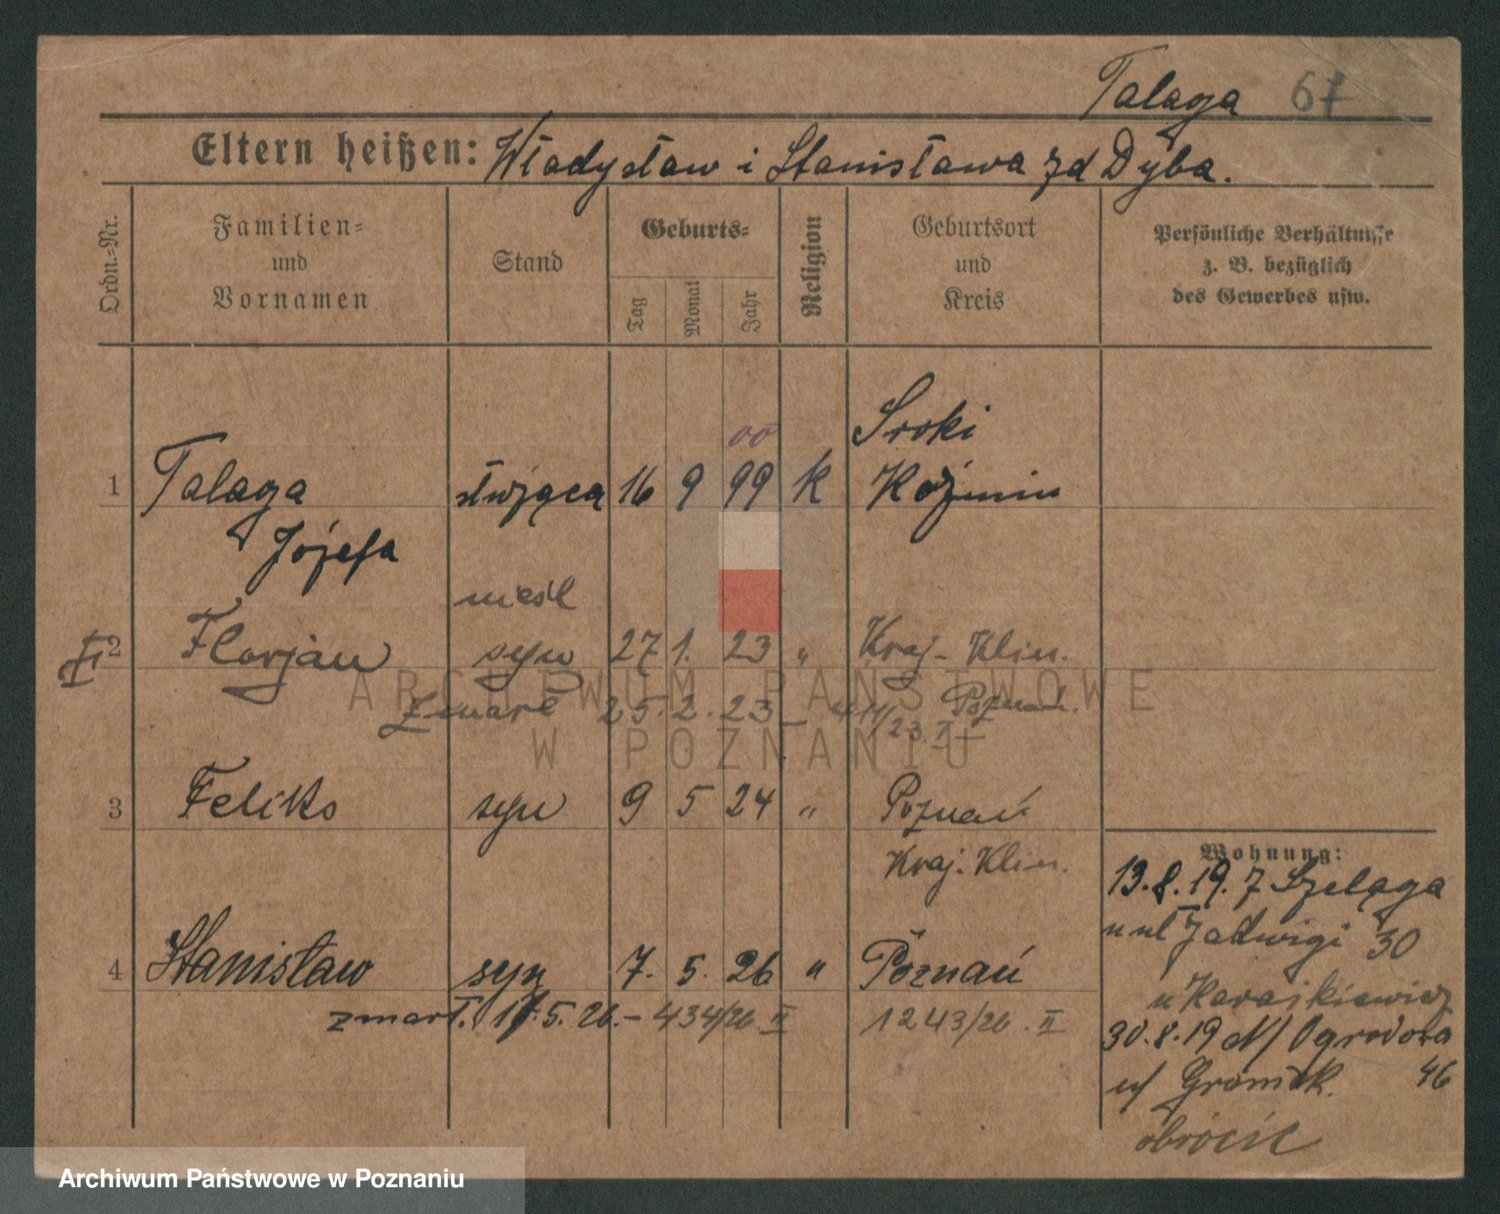 Talaga 67
Eltern heißen: Władysław i Stanisława zd Dyba.
Ordn.-Nr.
Familien-
und
Vornamen
Stand
Geburts-
Tag
Monat
Jahr
Religion
Geburtsort
und
Kreis
Persönliche Verhältnisse
z. B. bezüglich
des Gewerbes usw.
00 Sroki
1 Talaga służąca 16 9 99 K Koźmin
Józefa
nieśl
2 Florjan syn 27 1. 23 " Kraj. Klin.
zmarł 25. 2. 23 Poznań.
3 Feliks syn 9 5 24 " Poznań
Kraj. Klin.
4 Stanisław syn 7. 5. 26 " Poznań
zmarł. 17.5.26. - 434/26 II 1243/26. II
Wohnung:
13.8.19. 7 Szeląga
u ul Jadwigi 30
u
30.8.19 Ogrodowa
46
obrócić
ARCHIWUM PAŃSTWOWE
W POZNANIU
Archiwum Państwowe w Poznaniu